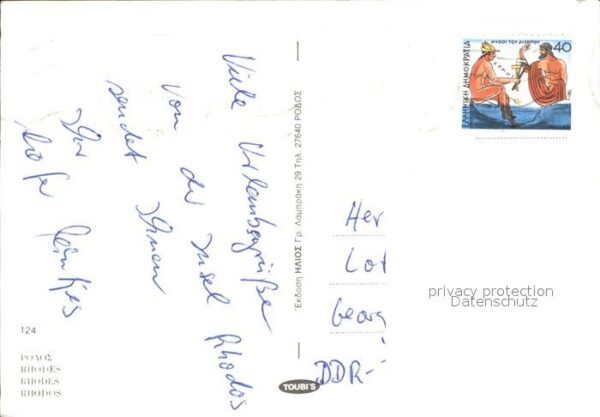 Viele Urlaubsgrüße
von der Insel Rhodos
sendet Ihnen
Ihr
124
ΡΟΔΟΣ
RHODES
RHODES
RHODOS
Έκδοση ΗΛΙΟΣ Γρ. Λαμπράκη 29 Τηλ. 27640 ΡΟΔΟΣ
TOUBI'S
ΜΥΘΟΙ ΤΟΥ ΑΙΣΩΠΟΥ
40
ΕΛΛΗΝΙΚΗ ΔΗΜΟΚΡΑΤΙΑ
Her
Lot
Georg
DDR-
privacy protection
Datenschutz